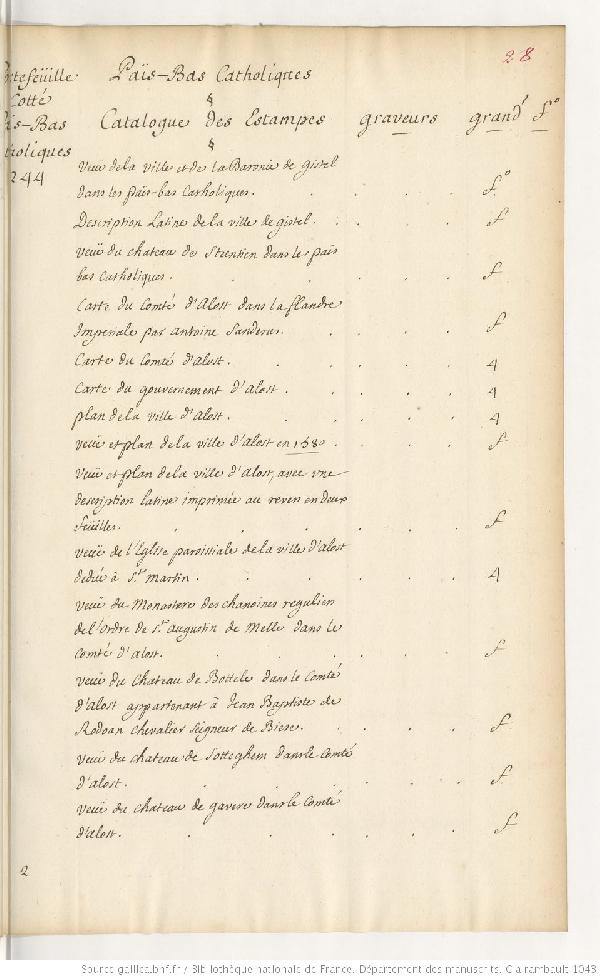 28
Païs-Bas Catholiques
§
Catalogue des Estampes graveurs grandr fo
§
244
Veue de la ville et de la Baronie de gistel
dans les païs-bas Catholiques. . . . fo
Description Latine de la ville de gistel. . . . f
veüe du chateau de Steentien dans les païs
bas Catholiques. . . . . f
Carte du Comté d'Alost dans la flandre
Imperiale par Antoine Sanderus. . . . f
Carte du Comté d'alost. . . . . 4
Carte du gouvernement d'Alost. . . . 4
plan de la ville d'Alost. . . . . 4
veüe et plan de la ville d'Alost en 1580. . . . f
Veüe et plan de la ville d'Alost, avec une
description latine imprimée au revers en deux
feüilles. . . . . . f
Veüe de l'Eglise paroissiale de la ville d'Alost
dediée à St. martin. . . . . 4
veüe du Monastere des chanoines reguliers
de l'Ordre de St. augustin de Melle dans le
Comté d'alost. . . . . f
veüe du Chateau de Bottele dans le Comté
d'Alost appartenant à Jean Baptiste de
Rodoan chevalier seigneur de Biese. . . . f
veüe du chateau de Sotteghem dans le Comté
d'alost. . . . . . f
veüe du chateau de gavere dans le Comté
d'alost. . . . . . f
2
Source gallica.bnf.fr / Bibliothèque nationale de France. Département des manuscrits. Clairambault 1043